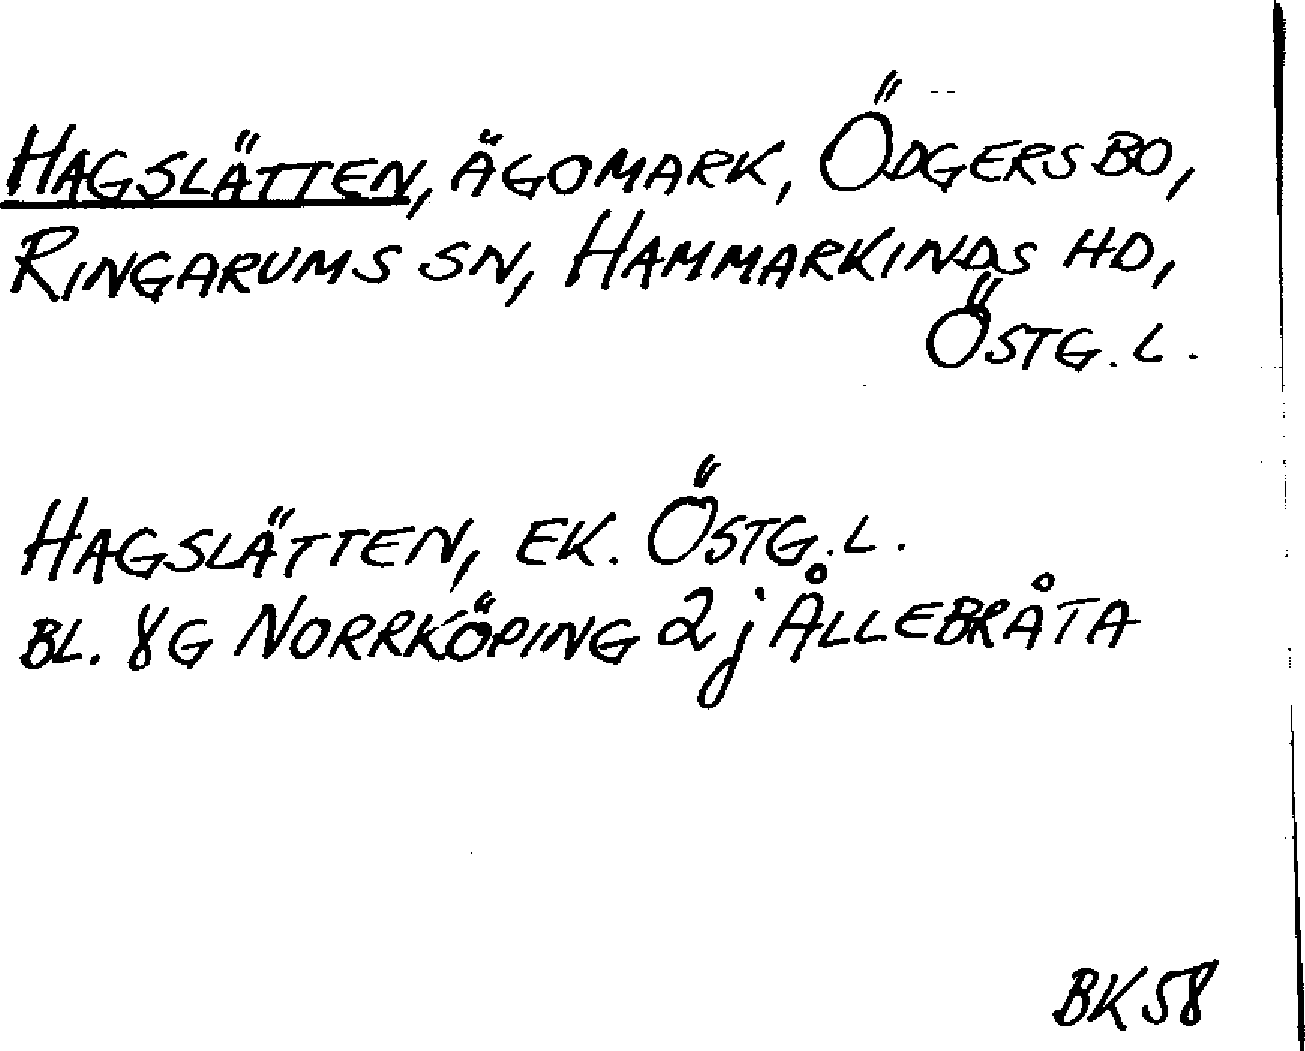 HAGSLÄTTEN, ÄGOMARK, ÖDGERSBO,
RINGARUMS SN, HAMMARKINDS HD,
ÖSTG. L.
HAGSLÄTTEN, EK. ÖSTG. L.
BL. 8G NORRKÖPING 2j ÅLLEBRÅTA
BK 58